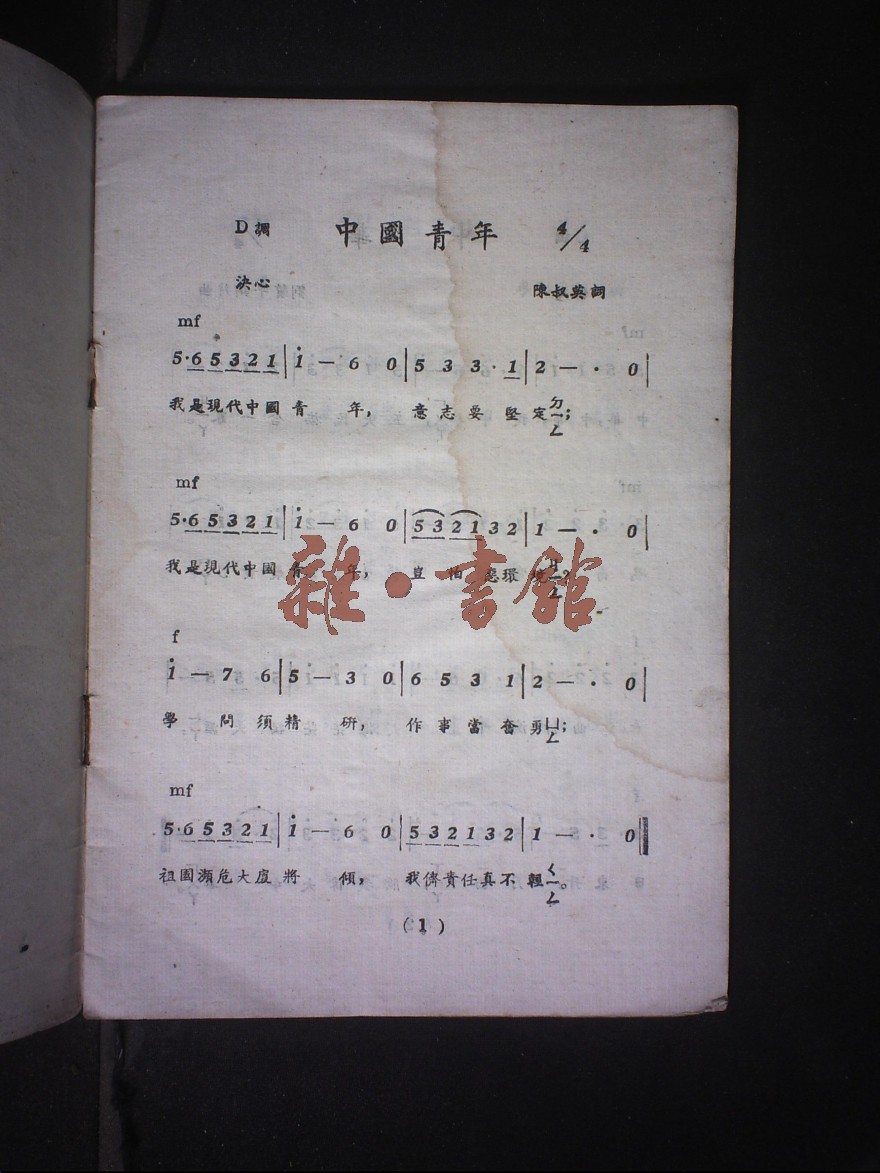 D調 中國青年 4/4
決心 陳叔英詞
mf
5·6 5 3 2 1 | i — 6 0 | 5 3 3 · 1 | 2 — · 0 |
我是現代中國青年，意志要堅定ㄉㄧㄥ；
mf
5·6 5 3 2 1 | i — 6 0 | 5 3 2 1 3 2 | 1 — · 0 |
我是現代中國青年，豈怕惡環境ㄐㄧㄥ？
雜·書館
f
i — 7 6 | 5 — 3 0 | 6 5 3 1 | 2 — · 0 |
學問須精研，作事當奮勇ㄩㄥ；
mf
5·6 5 3 2 1 | i — 6 0 | 5 3 2 1 3 2 | 1 — · 0 ‖
祖國瀕危大廈將傾，我儕責任真不輕ㄑㄧㄥ。
(1)